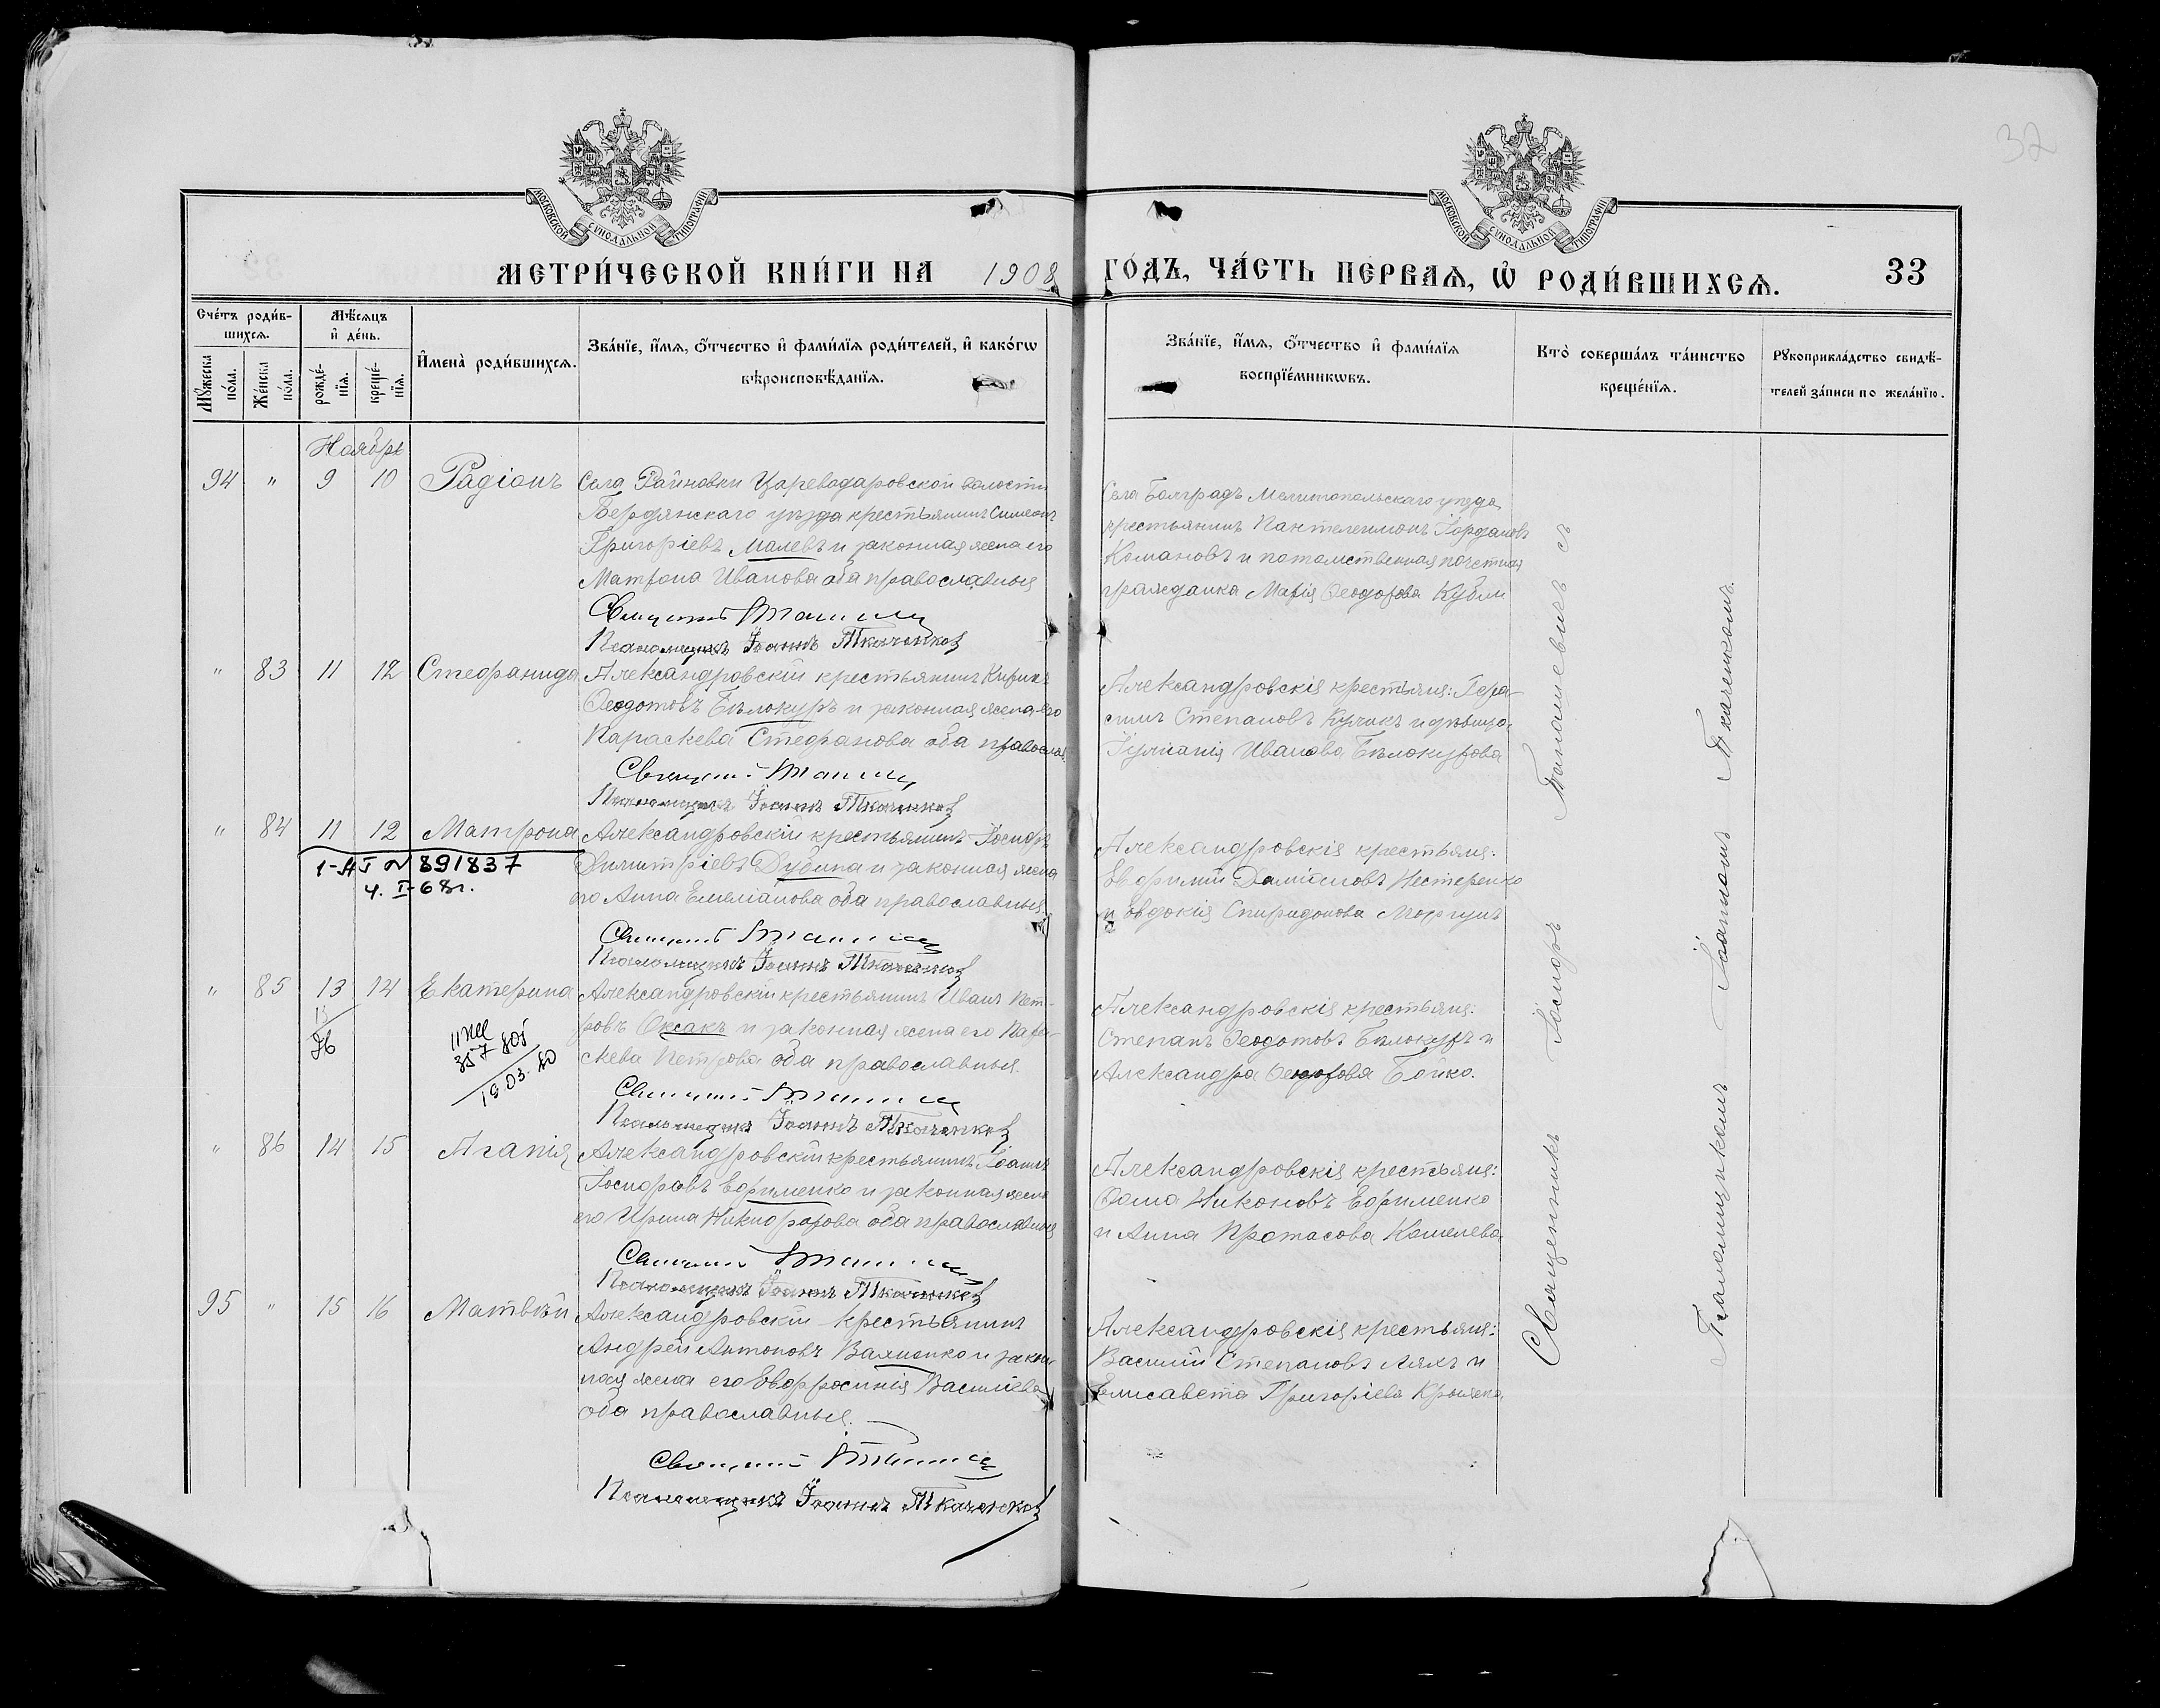 32
МОСКОВСКОЙ СѴНОДАЛЬНОЙ ТИПОГРАФІИ
МОСКОВСКОЙ СѴНОДАЛЬНОЙ ТИПОГРАФІИ
МЕТРИ́ЧЕСКОЙ КНИ́ГИ НА 1908 ГО́ДЪ, ЧА́СТЬ ПЕ́РВАѦ, Ѽ РОДИ́ВШИХСѦ. 33
Сче́тъ роди́в-
шихсѧ.
Мꙋ́жеска по́ла.
Же́нска по́ла.
Мѣ́сѧцъ
и҆ де́нь.
рожде́-нїѧ.
креще́-нїѧ.
И҆мена̀ роди́вшихсѧ.
Зва́нїе, и҆́мѧ, ѻ҆́тчество и҆ фами́лїѧ роди́телей, и҆ како́гѡ
вѣроисповѣ́данїѧ.
Зва́нїе, и҆́мѧ, ѻ҆́тчество и҆ фами́лїѧ
воспрїе́мникѡвъ.
Кто̀ соверша́лъ та́инство
креще́нїѧ.
Рꙋкоприкла́дство свидѣ́-
телей за́писи по жела́нїю.
Ноябрь
94 " 9 10 Радіонъ
Села Райновки Цареводаровской волости
Бердянскаго уѣзда крестьянинъ Симеонъ
Григоріевъ Малевъ и законная жена его
Матрона Иванова оба православныя
Священникъ
Псаломщикъ Іоаннъ Ткаченковъ
Села Болградъ Мелитопольскаго уѣзда
крестьянинъ Пантелеимонъ Іордановъ
Комановъ и потомственная почетная
гражданка Марія Ѳеодорова
" 83 11 12 Стефанида
Александровскій крестьянинъ Кирикъ
Ѳеодотовъ Бѣлокуръ и законная жена его
Параскева Стефанова оба православн.
Священникъ
Псаломщикъ Іоаннъ Ткаченковъ
Александровскія крестьяня: Гера-
симъ Степановъ Куликъ и дѣвица
Іуліанія Иванова Бѣлокурова
" 84 11 12 Матрона
1-АЅ № 891837
4. I-68г.
Александровскій крестьянинъ Іосифъ
Димитріевъ Дубина и законная жена
его Анна Емеліанова оба православныя
Священникъ
Псаломщикъ Іоаннъ Ткаченковъ
Александровскія крестьяня:
Евфимій Даміановъ Нестеренко
и Евдокія Спиридонова Моргунъ
" 85 13 14 Екатерина
26
357 805
19.03.80
Александровскій крестьянинъ Иванъ Пет-
ровъ Оксакъ и законная жена его Пара-
скева Петрова оба православныя.
Священникъ
Псаломщикъ Іоаннъ Ткаченковъ
Александровскія крестьяня:
Степанъ Ѳеодотовъ Бѣлокуръ и
Александра Ѳеодорова Бойко.
" 86 14 15 Агапія
Александровскій крестьянинъ Іоаннъ
Іосифовъ Ефименко и законная жена
его Ирина Никифорова оба православныя
Священникъ
Псаломщикъ Іоаннъ Ткаченковъ
Александровскія крестьяня:
Ѳома Никоновъ Ефименко
и Анна Протасова Кошелева
95 " 15 16 Матвѣй
Александровскій крестьянинъ
Андрей Антоновъ Вакленко и закон-
ная жена его Евфросинія Василіева
оба православныя.
Священникъ
Псаломщикъ Іоаннъ Ткаченковъ
Александровскія крестьяня:
Василій Степановъ Ляхъ и
Елисавета Григоріева
Священникъ Іосифъ Танашевичъ съ
Псаломщикомъ Іоанномъ Ткаченкомъ